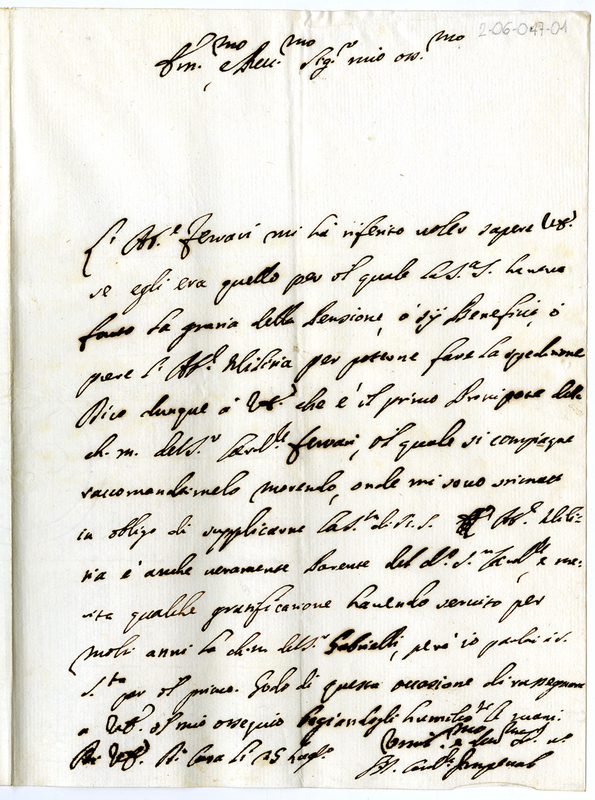 2-06-047-01
Em.mo e Reu.mo Sig.r mio oss.mo
L'Ab.e Ferrari mi hà riferito uoler sapere V.E.
se egli era quello per il quale la S.tà S. haueua
fatto la grazia della Pensione, ò sij Beneficio, ò
pure l'Ab.e per poterne fare la speditione
Dico dunque à V.E. che è il primo Pronipote della
ch. m. del S.r Card.le Ferrari, il quale si compiaque
raccomandarmelo morendo, onde mi sono stimato
in obligo di supplicarne la S.tà di N.S. Ab.e
è anche ueramente Parente del d.o S.r Card.le e me-
rita qualche gratificatione hauendo seruito per
molti anni la ch. m. del S.r Gabrielli, però io parlai à S.
S.tà per il primo. Godo di questa occasione di rassegnare
a V.E. il mio ossequio baciandogli humilis.te le mani.
Di V.E. Di Casa li 25 Lugl.o
Humil.mo e
Il Card.l